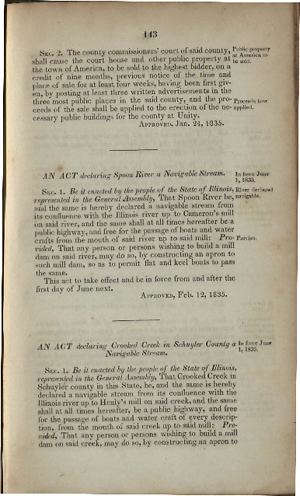 143
SEC. 2. The county commissioners' court of said county,
shall cause the court house and other public property at
the town of America, to be sold to the highest bidder, on a
credit of nine months, previous notice of the time and
place of sale for at least four weeks, having been first giv-
en, by posting at least three written advertisements in the
three most public places in the said county, and the pro-
ceeds of the sale shall be applied to the erection of the ne-
cessary public buildings for the county at Unity.
APPROVED, Jan. 24, 1835.
Public property
at America to
be sold.
Proceeds how
applied.
AN ACT declaring Spoon River a Navigable Stream.
In force June
1, 1835.
SEC. 1. Be it enacted by the people of the State of Illinois,
represented in the General Assembly, That Spoon River be,
and the same is hereby declared a navigable stream from
its confluence with the Illinois river up to Cameron's mill
on said river, and the same shall at all times hereafter be a
public highway, and free for the passage of boats and water
crafts from the mouth of said river up to said mill: Pro-
vided, That any person or persons wishing to build a mill
dam on said river, may do so, by constructing an apron to
such mill dam, so as to permit flat and keel boats to pass
the same.
River declared
navigable.
Proviso.
This act to take effect and be in force from and after the
first day of June next.
APPROVED, Feb. 12, 1835.
AN ACT declaring Crooked Creek in Schuyler County a
Navigable Stream.
In force June
1, 1835.
SEC. 1. Be it enacted by the people of the State of Illinois,
represented in the General Assembly, That Crooked Creek in
Schuyler county in this State, be, and the same is hereby
declared a navigable stream from its confluence with the
Illinois river up to Henly's mill on said creek, and the same
shall at all times hereafter, be a public highway, and free
for the passage of boats and water craft of every descrip-
tion, from the mouth of said creek up to said mill: Pro-
vided, That any person or persons wishing to build a mill
dam on said creek, may do so, by constructing an apron to